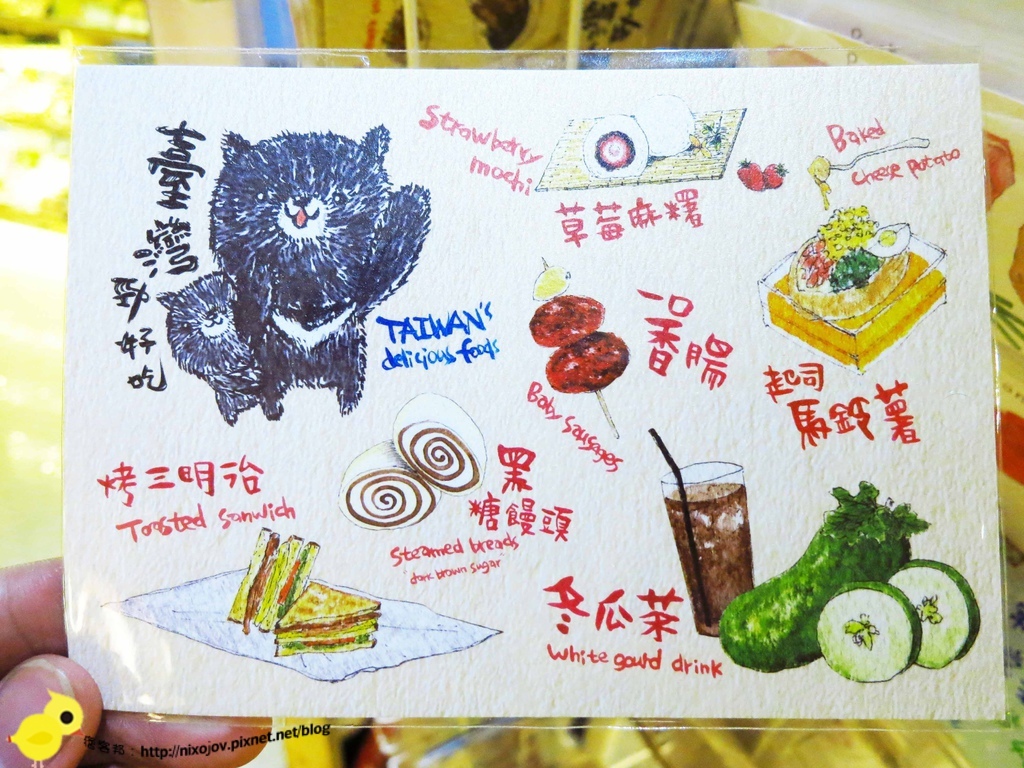 臺灣
勁好吃
TAIWAN's
delicious foods
Strawberry
mochi
草莓麻糬
Baked
cheese potato
起司
馬鈴薯
一口
香腸
Baby sausages
烤三明治
Toasted sanwich
黑
糖饅頭
Steamed breads
dark brown sugar
冬瓜茶
White gourd drink
痞客邦：http://nixojov.pixnet.net/blog